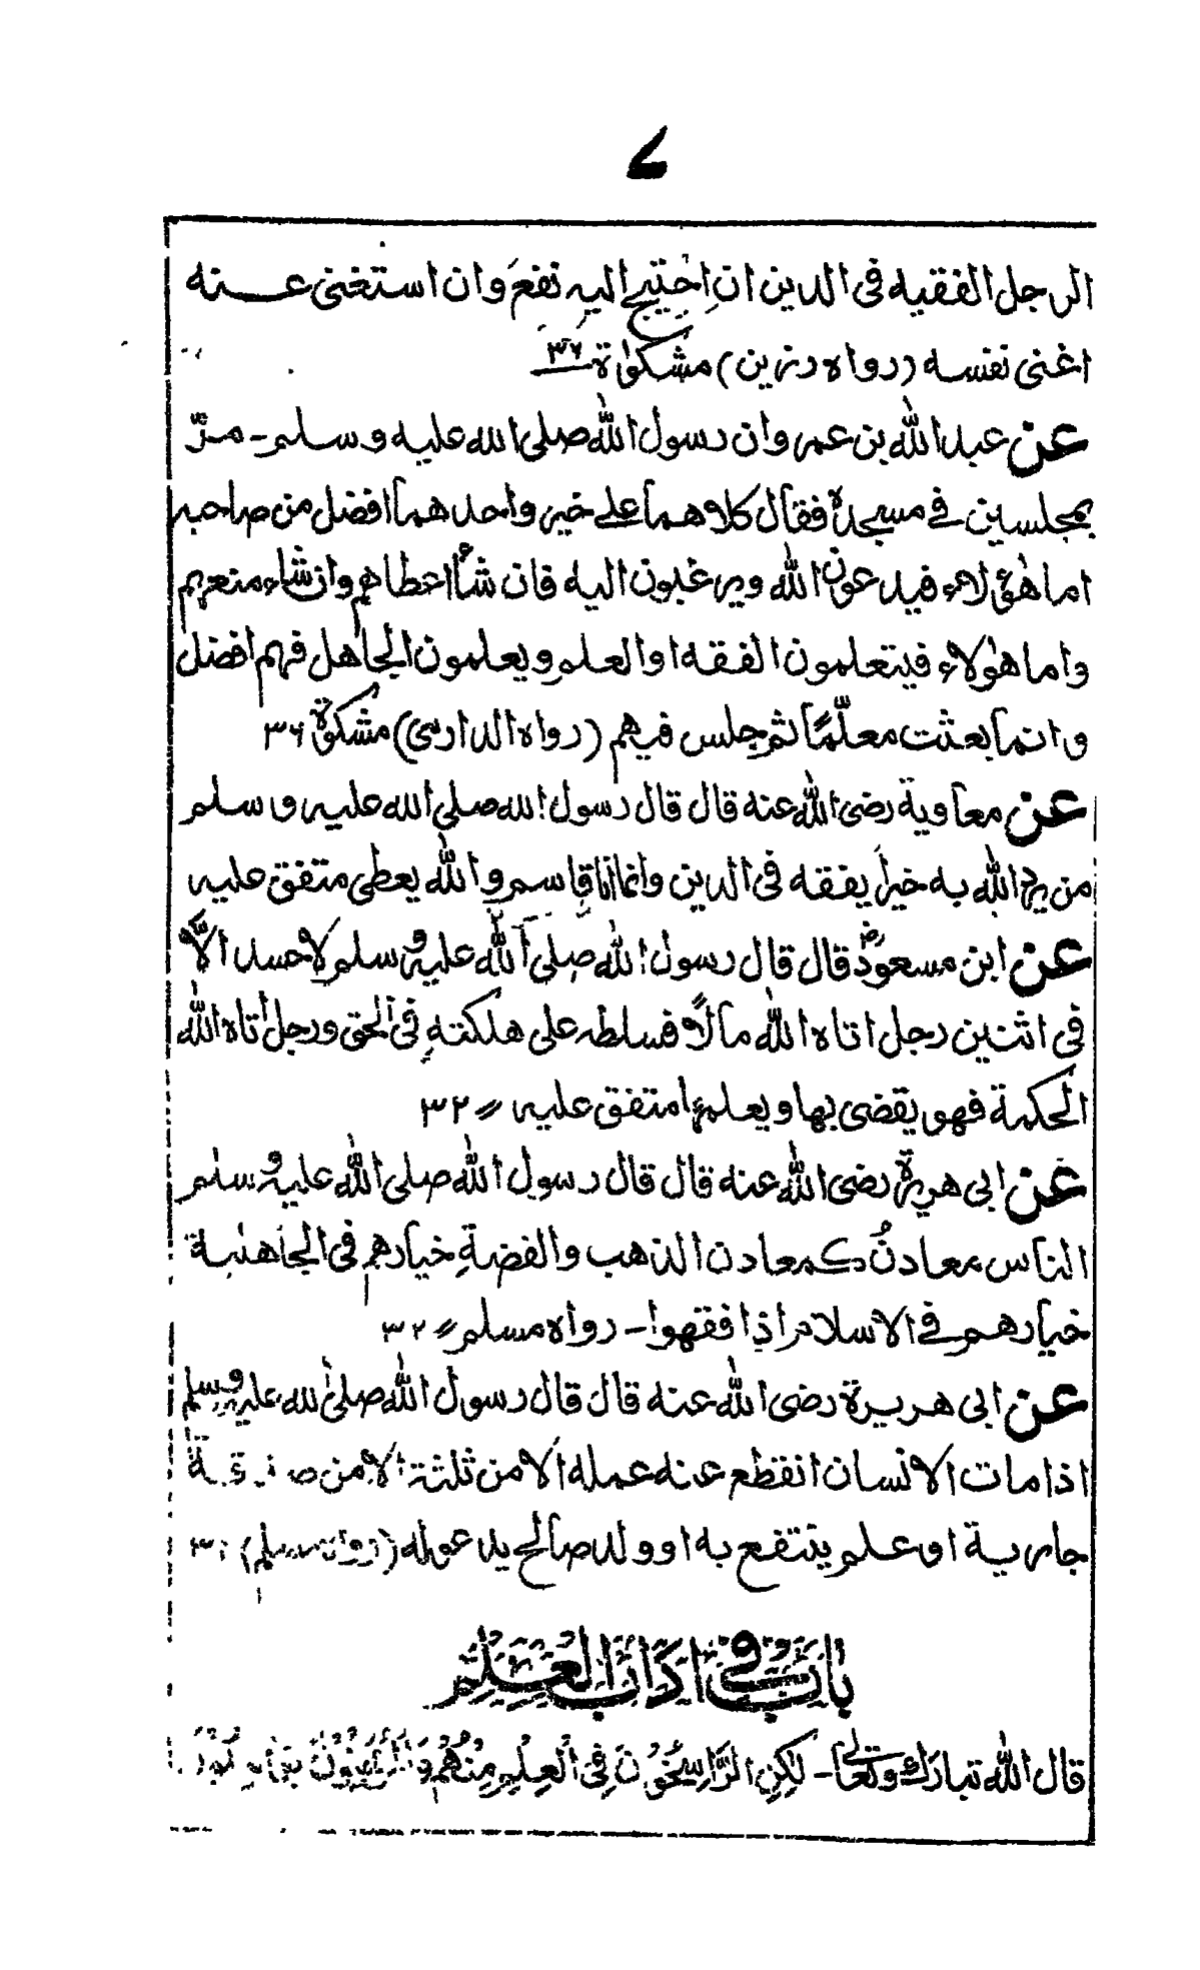 ۷
الرجل الفقیه فی الدین ان اِحْتیج الیه نفعَ وان استغنی عنه
اغنی نفسه (رواه رزین) مشکوٰة ۳۶
عن عبد الله بن عمرو ان رسول الله صلی الله علیه وسلم۔ مرّ
بمجلسین فی مسجده فقال کلاهما علے خیر واحدهما افضل من صاحبه
اما هٰؤلاء فیدعون الله ویرغبون الیه فان شأ اعطاهم وان شاء منعهم
واما هٰولاء فیتعلمون الفقه او العلم ویعلمون الجاهل فهم افضل
وانما بعثت معلّمًا ثم جلس فیهم (رواه الدارمی) مشکوٰة ۳۶
عن معاویة رضی الله عنه قال قال رسول الله صلی الله علیه وسلم
من یرد الله به خیراً یفقه فی الدین وانما انا قاسم والله یعطی متفق علیه
عن ابن مسعودؓ قال قال رسول الله صلی الله علیه وسلم لا حسد الاّ
فی اثنین رجل اتاه الله مالاً فسلطه علی هلکتهِ فی الحق ورجل اتاه الله
الحکمة فهو یقضی بها ویعلمها متفق علیه ۳۲ 〃
عن ابی هریرة رضی الله عنه قال قال رسول الله صلی الله علیه وسلم
الناس معادنُ کمعادن الذهب والفضةِ خیارهم فی الجاهلیة
خیارهم فی الاسلام اذا فقهوا۔ رواه مسلم 〃 ۳۲
عن ابی هریرة رضی الله عنه قال قال رسول الله صلی الله علیه وسلم
اذا مات الانسان انقطع عنه عمله الا من ثلثة الا من صدقة
جاریة او علم ینتفع به او ولد صالح یدعو له (رواه مسلم)
باب فی اداب العلم
قال الله تبارک وتعالیٰ۔ لٰکِنِ الرَّاسِخُوْنَ فِی الْعِلْمِ مِنْهُمْ وَالْمُؤْمِنُوْنَ